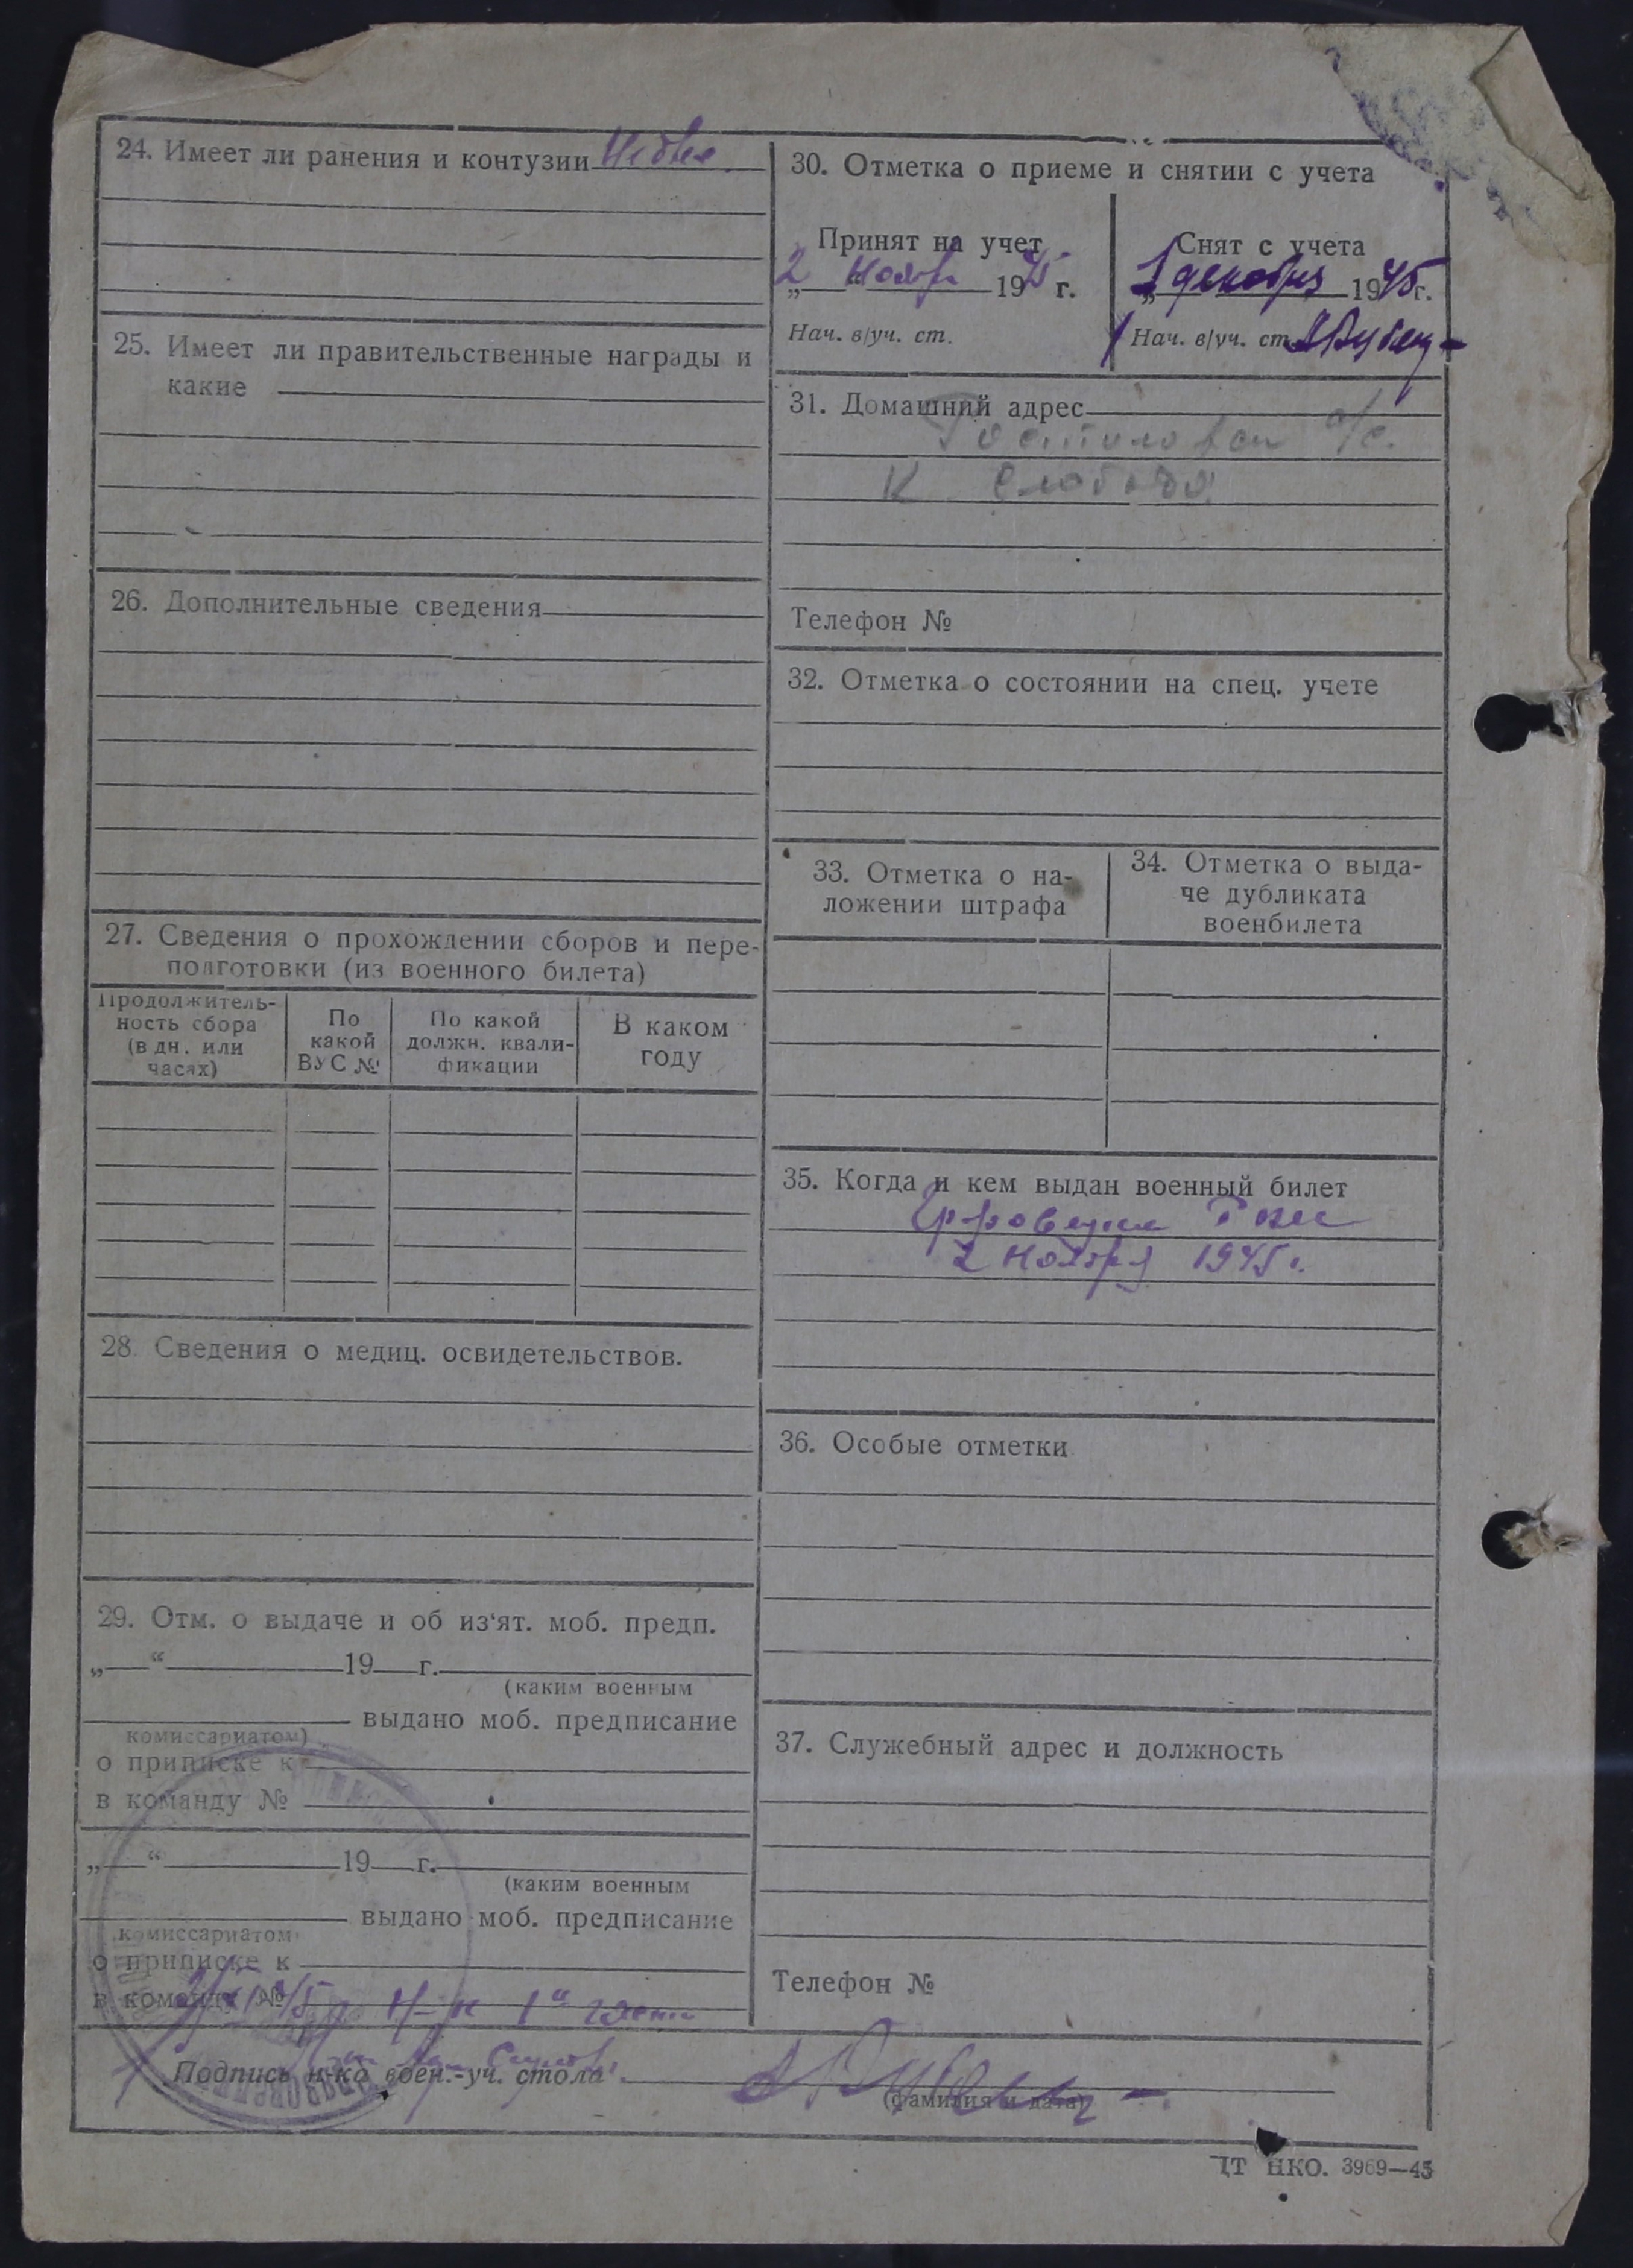 24. Имеет ли ранения и контузии
25. Имеет ли правительственные награды и
какие
26. Дополнительные сведения
27. Сведения о прохождении сборов и пере-
подготовки (из военного билета)
Продолжитель-
ность сбора
(в дн. или
часах)
По
какой
ВУС №
По какой
должн. квали-
фикации
В каком
году
28. Сведения о медиц. освидетельствов.
29. Отм. о выдаче и об из‘ят. моб. предп.
„ “ 19 г.
(каким военным
выдано моб. предписание
комиссариатом)
о приписке к
в команду №
„ “ 19 г.
(каким военным
выдано моб. предписание
комиссариатом
о приписке к
в команду №
Н-к 1й части
30. Отметка о приеме и снятии с учета
Принят на учет
„2 ноября 1945 г.
Нач. в/уч. ст.
Снят с учета
1 декабря 1945 г.
Нач. в/уч. ст.
31. Домашний адрес
с/с.
К Слобода
Телефон №
32. Отметка о состоянии на спец. учете
33. Отметка о на-
ложении штрафа
34. Отметка о выда-
че дубликата
военбилета
35. Когда и кем выдан военный билет
2 ноября 1945 г.
36. Особые отметки
37. Служебный адрес и должность
Телефон №
Подпись н-ка воен.-уч. стола
(фамилия и дата)
ЦТ НКО. 3969—45